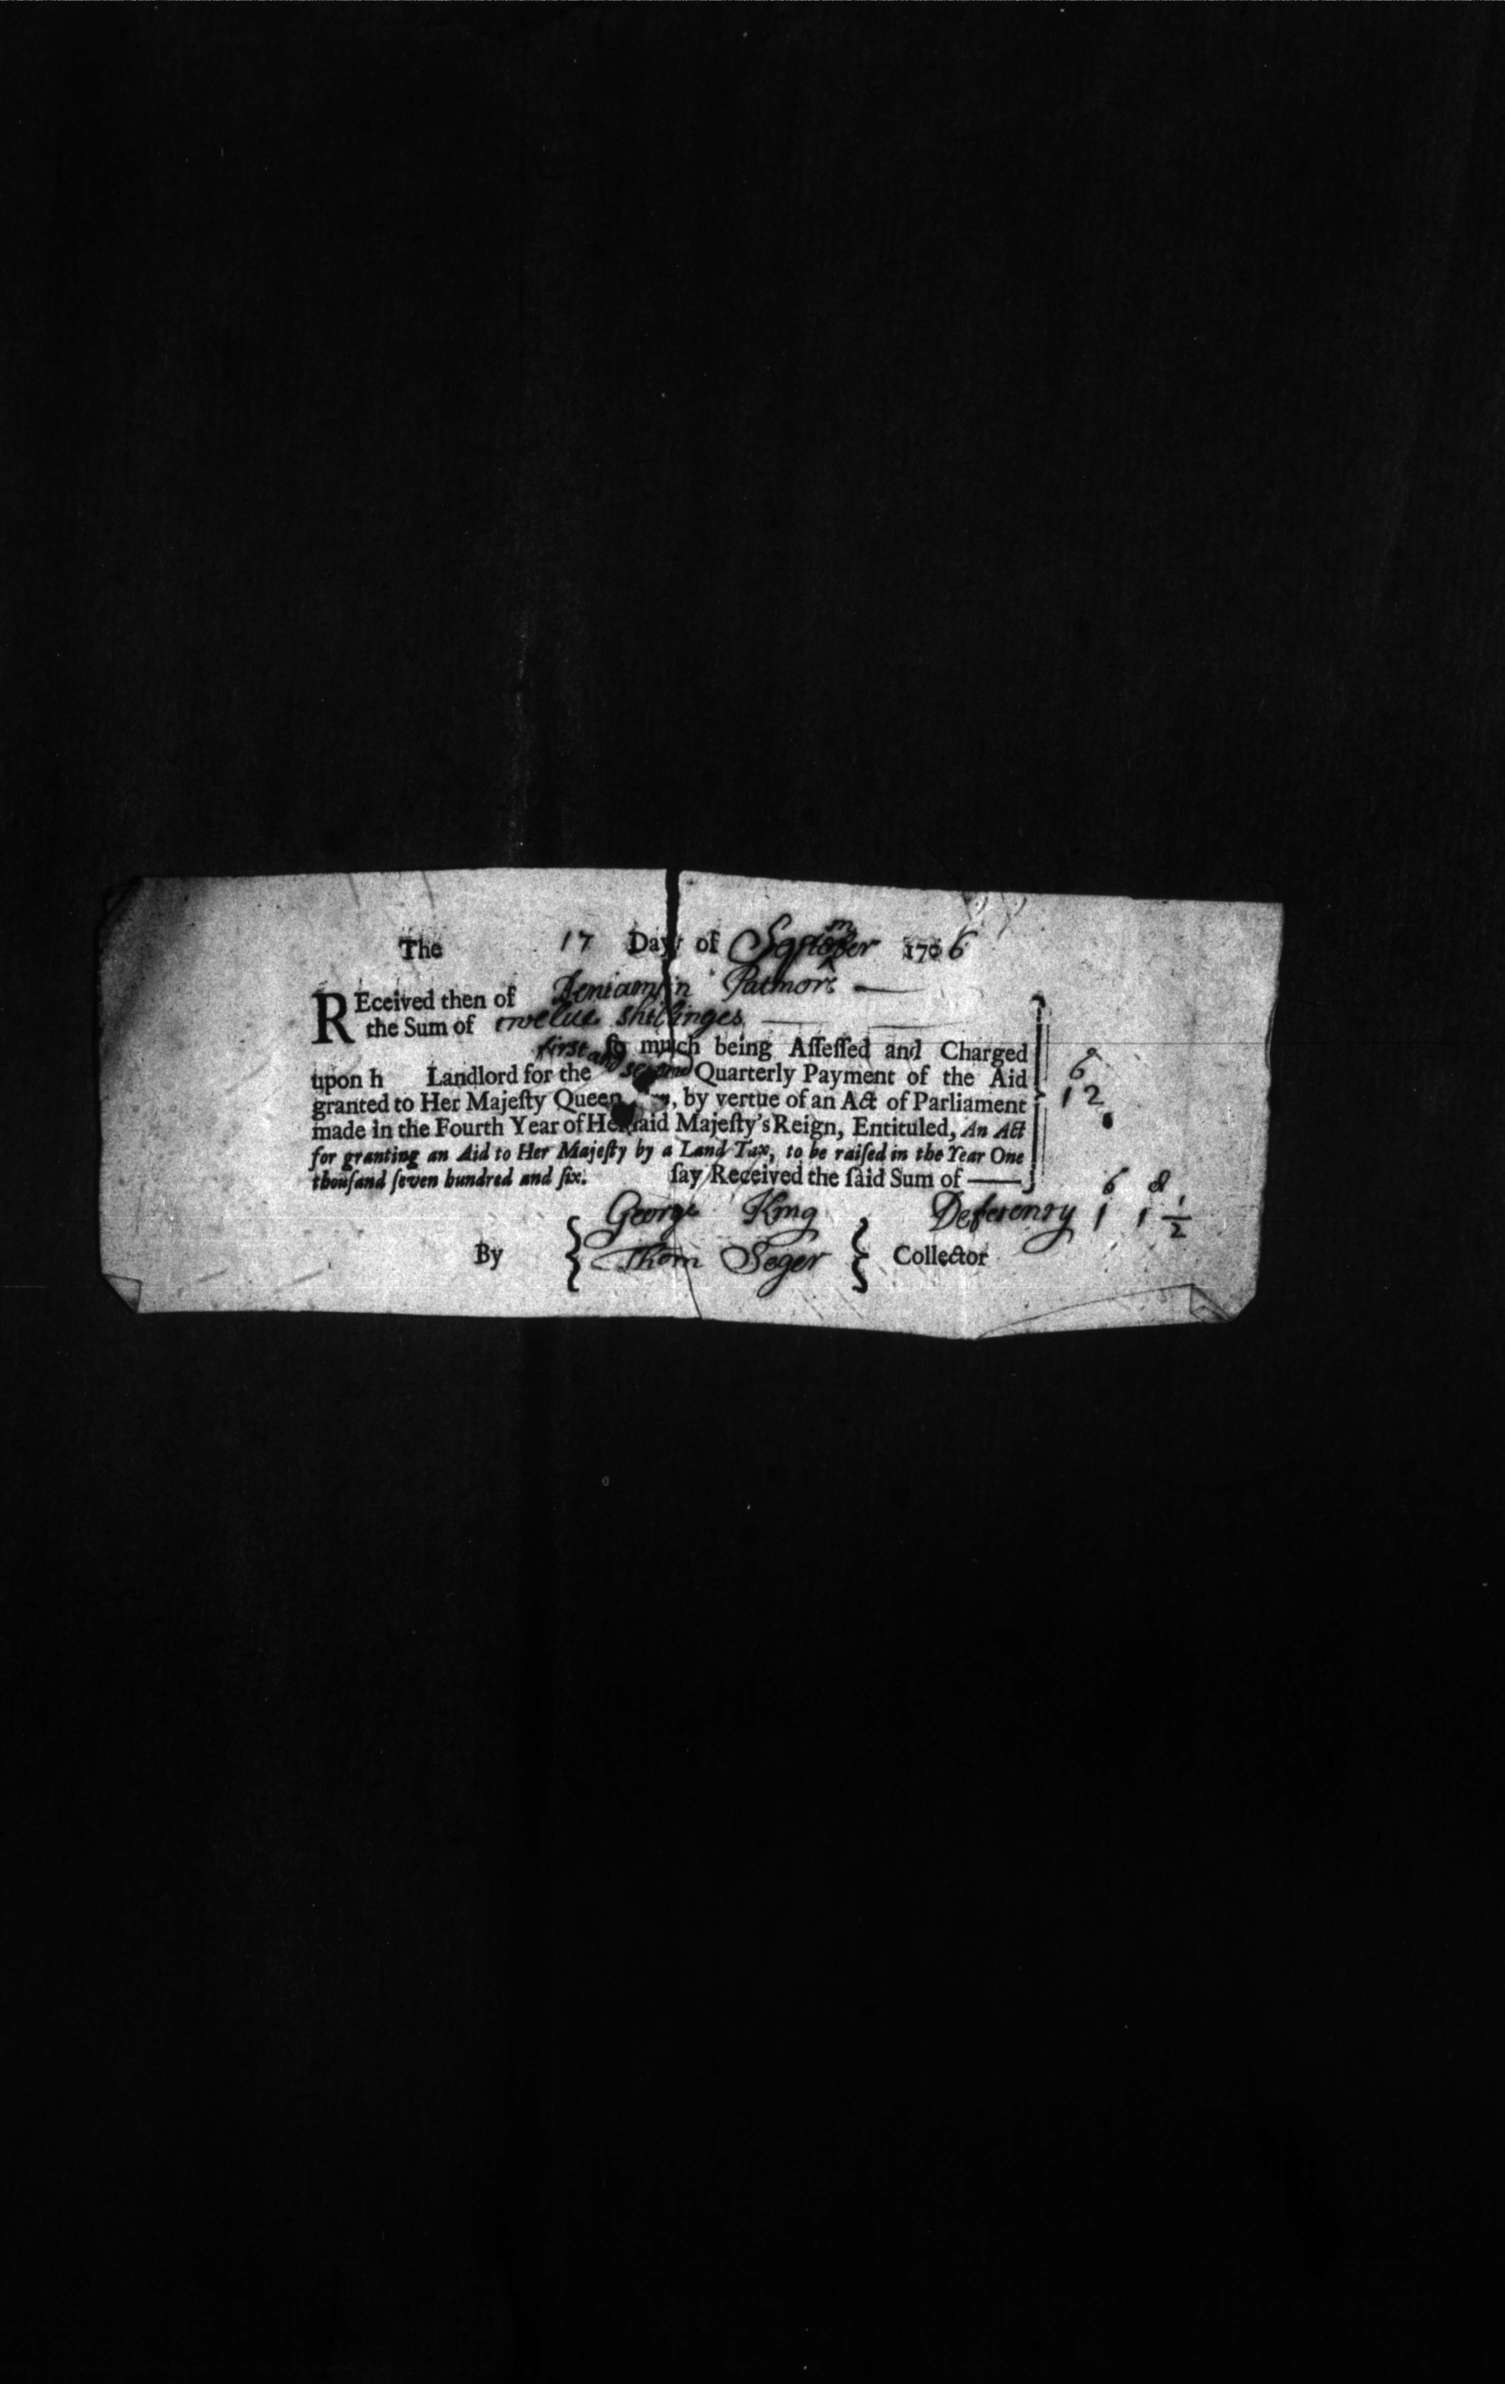 The 17 Day of Septembr 1706
REceived then of Beniamin Patmore
the Sum of twelue shillinges
first and second
so much being Aſſeſſed and Charged
upon h Landlord for the Quarterly Payment of the Aid
granted to Her Majeſty Queen , by vertue of an Act of Parliament
made in the Fourth Year of Her ſaid Majeſty's Reign, Entituled, An Act
for granting an Aid to Her Majeſty by a Land Tax, to be raiſed in the Year One
thouſand ſeven hundred and ſix. ſay Received the ſaid Sum of
s
12
s d
George King Deferenry 1 1 1/2
By Thom Seger Collector